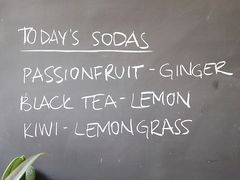 TODAY'S SODAS
PASSIONFRUIT - GINGER
BLACK TEA - LEMON
KIWI - LEMONGRASS